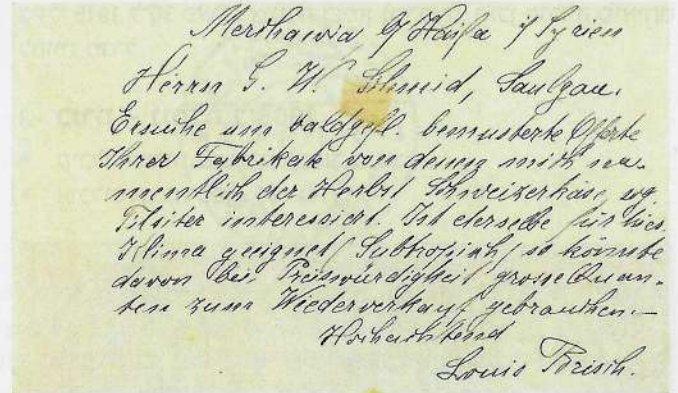 Merchawia b/ Haifa i/ Syrien
Herrn G. W. Schmid, Saulgau.
Ersuche um baldgefl. bemusterte Offerte
Ihrer Fabrikate von denen mich na-
mentlich der Herbst Schweizerkäse, og.
Tilsiter interessiert. Ist derselbe für hies.
Klima geeignet (Subtropisch) so könnte
davon bei Preiswürdigkeit grosse Quan-
ten zum Wiederverkauf gebrauchen.—
Hochachtend
Louis